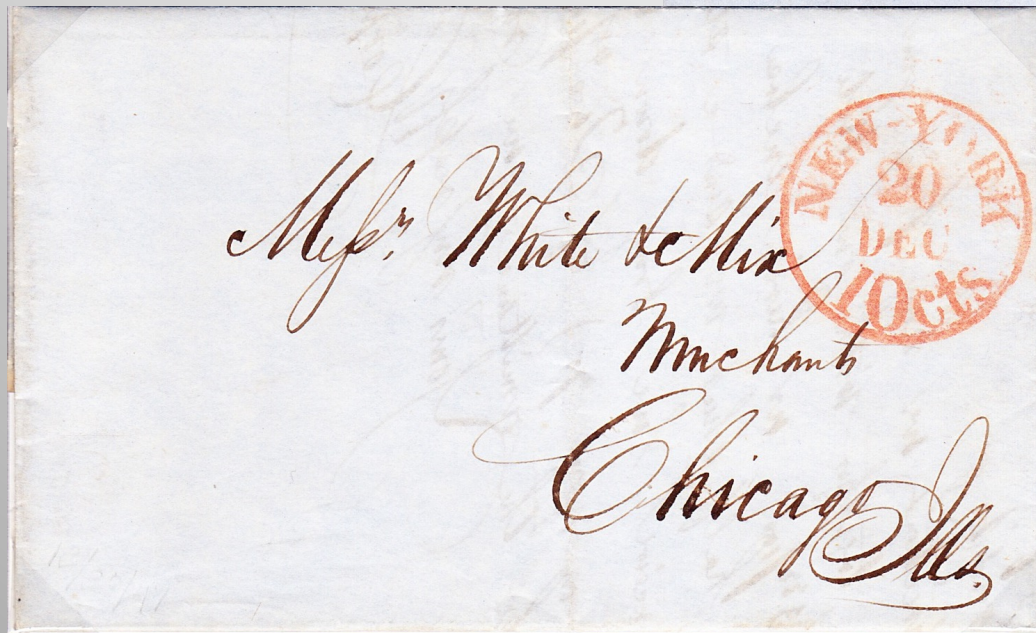 NEW-YORK
20
DEC
10cts
Messrs. White & Mix
Merchants
Chicago
Ills.